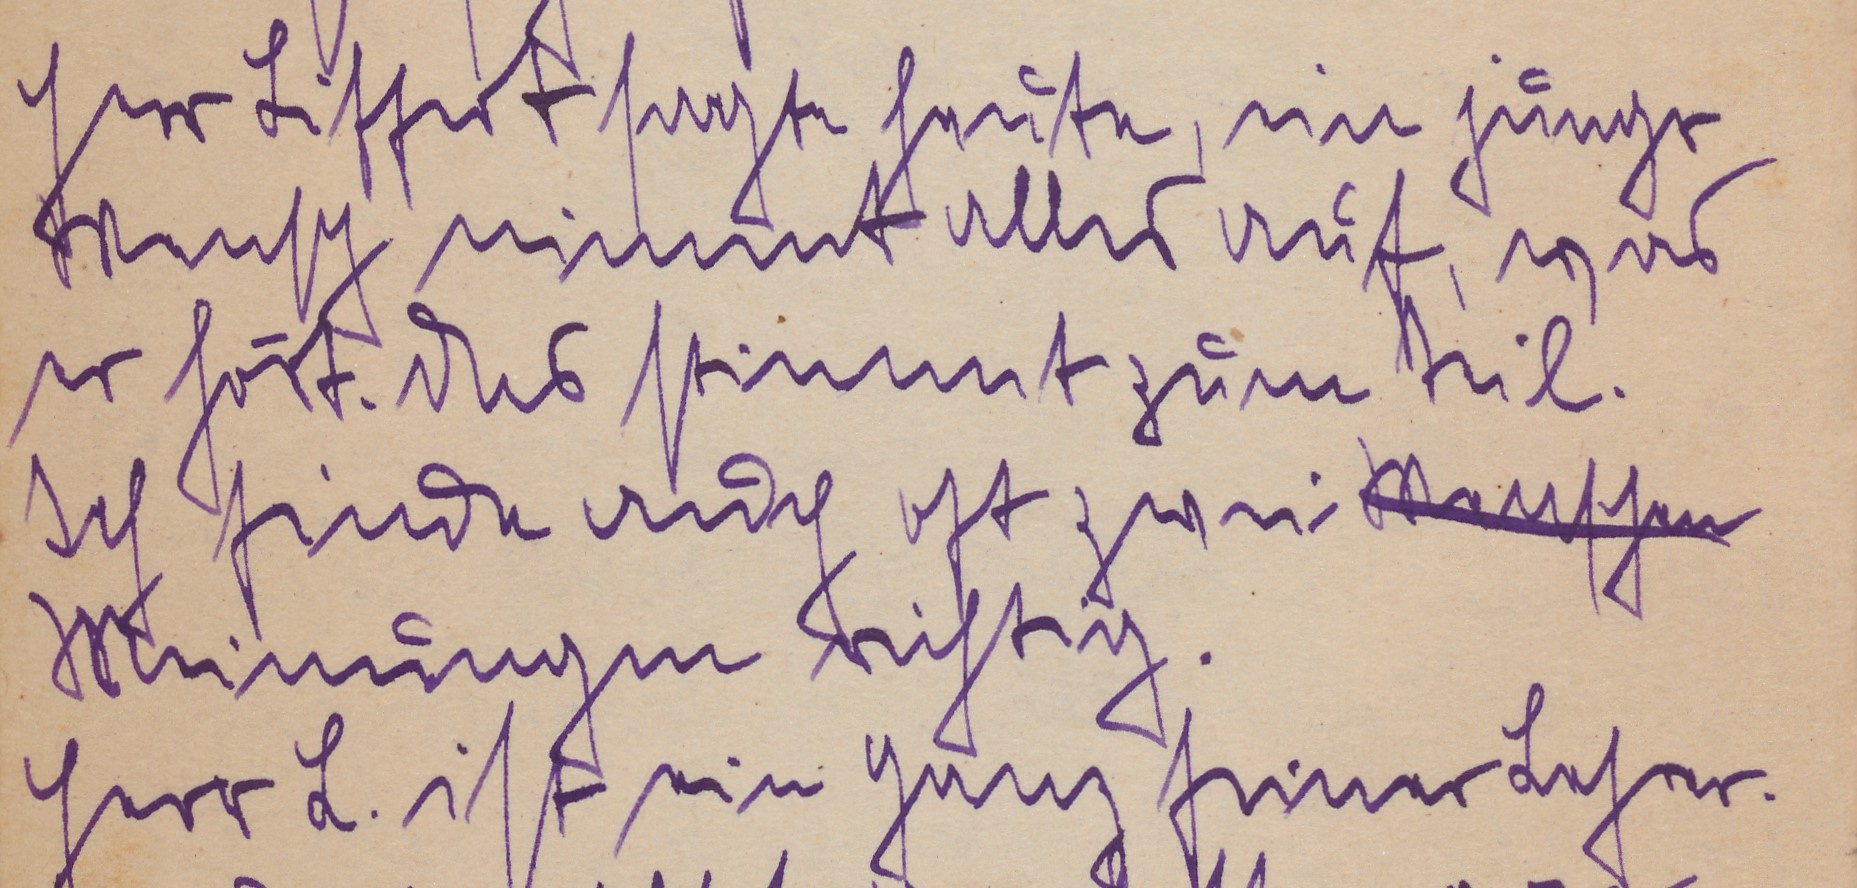 Herr Liffert sagte heute, ein junger
Mensch nimmt alles auf, was
er hört. Das stimmt zum Teil.
Ich finde auch oft zwei Menschen
Meinungen richtig.
Herr L. ist ein ganz feiner Lehrer.